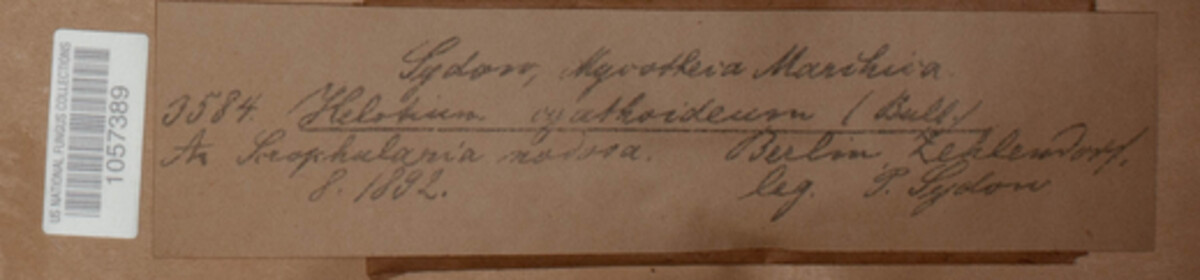 US NATIONAL FUNGUS COLLECTIONS
1057389
Sydow, Mycotheca Marchica.
3584. Helotium cyathoideum (Bull.)
An Scrophularia nodosa. Berlin, Zehlendorf.
8. 1892. leg. P. Sydow